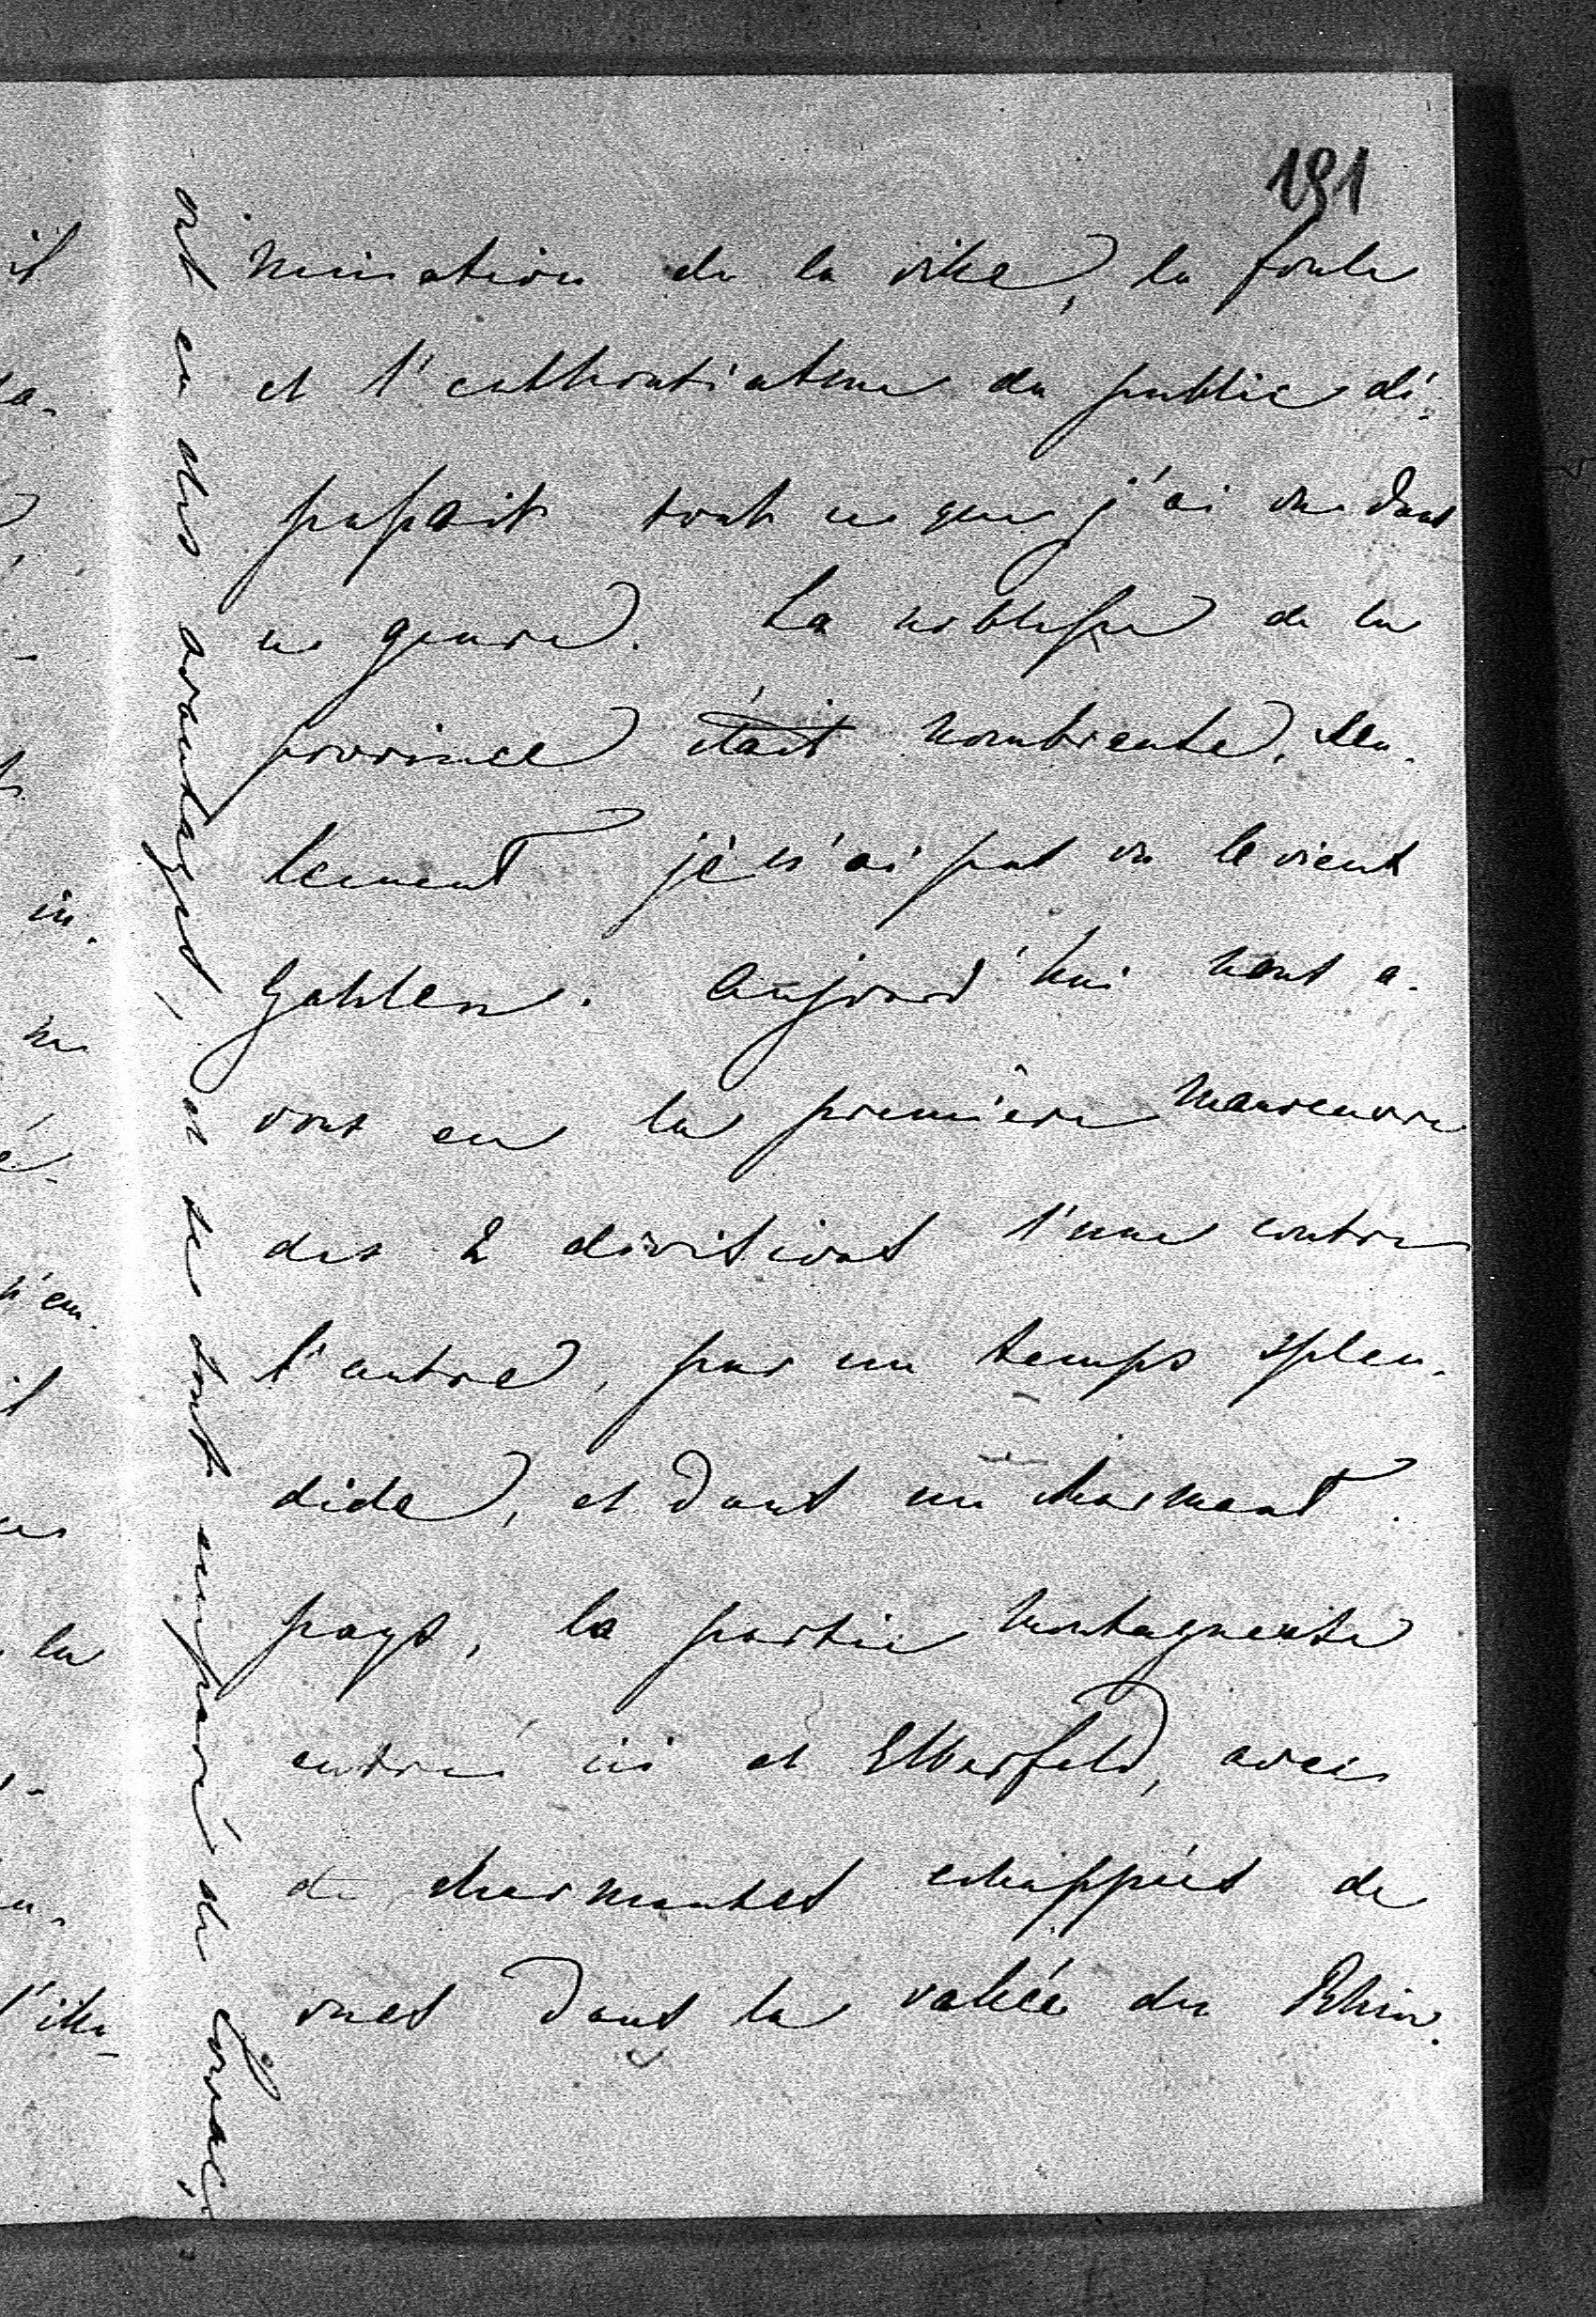 191
mination de la ville, la foule
et l'enthousiasme du public dé-
passait tout ce que j'ai vu dans
ce genre. La noblesse de la
province était nombreuse, seu-
lement je n'ai pas vu le vieux
Gahlen. Aujourd'hui nous a-
vons eu la première manoeuvre
des 2 divisions l'une contre
l'autre, par un temps splen-
dide, et dans un charmant
pays, la partie montagneuse
entre ici et Elberfeld, avec
de charmantes echappées de
vues dans la vallée du Rhin.
ont eu des avantages, et se sont emparé de